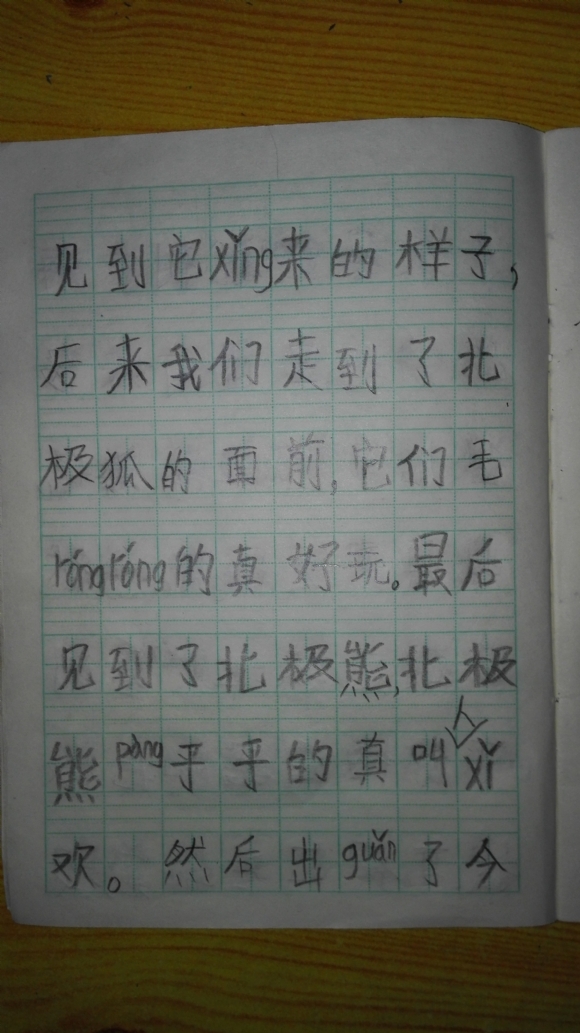 见到它xǐng来的样子，
后来我们走到了北
极狐的面前，它们毛
róngróng的真好玩。最后
见到了北极熊，北极
熊pàng乎乎的真叫人xǐ
欢。然后出guǎn了今